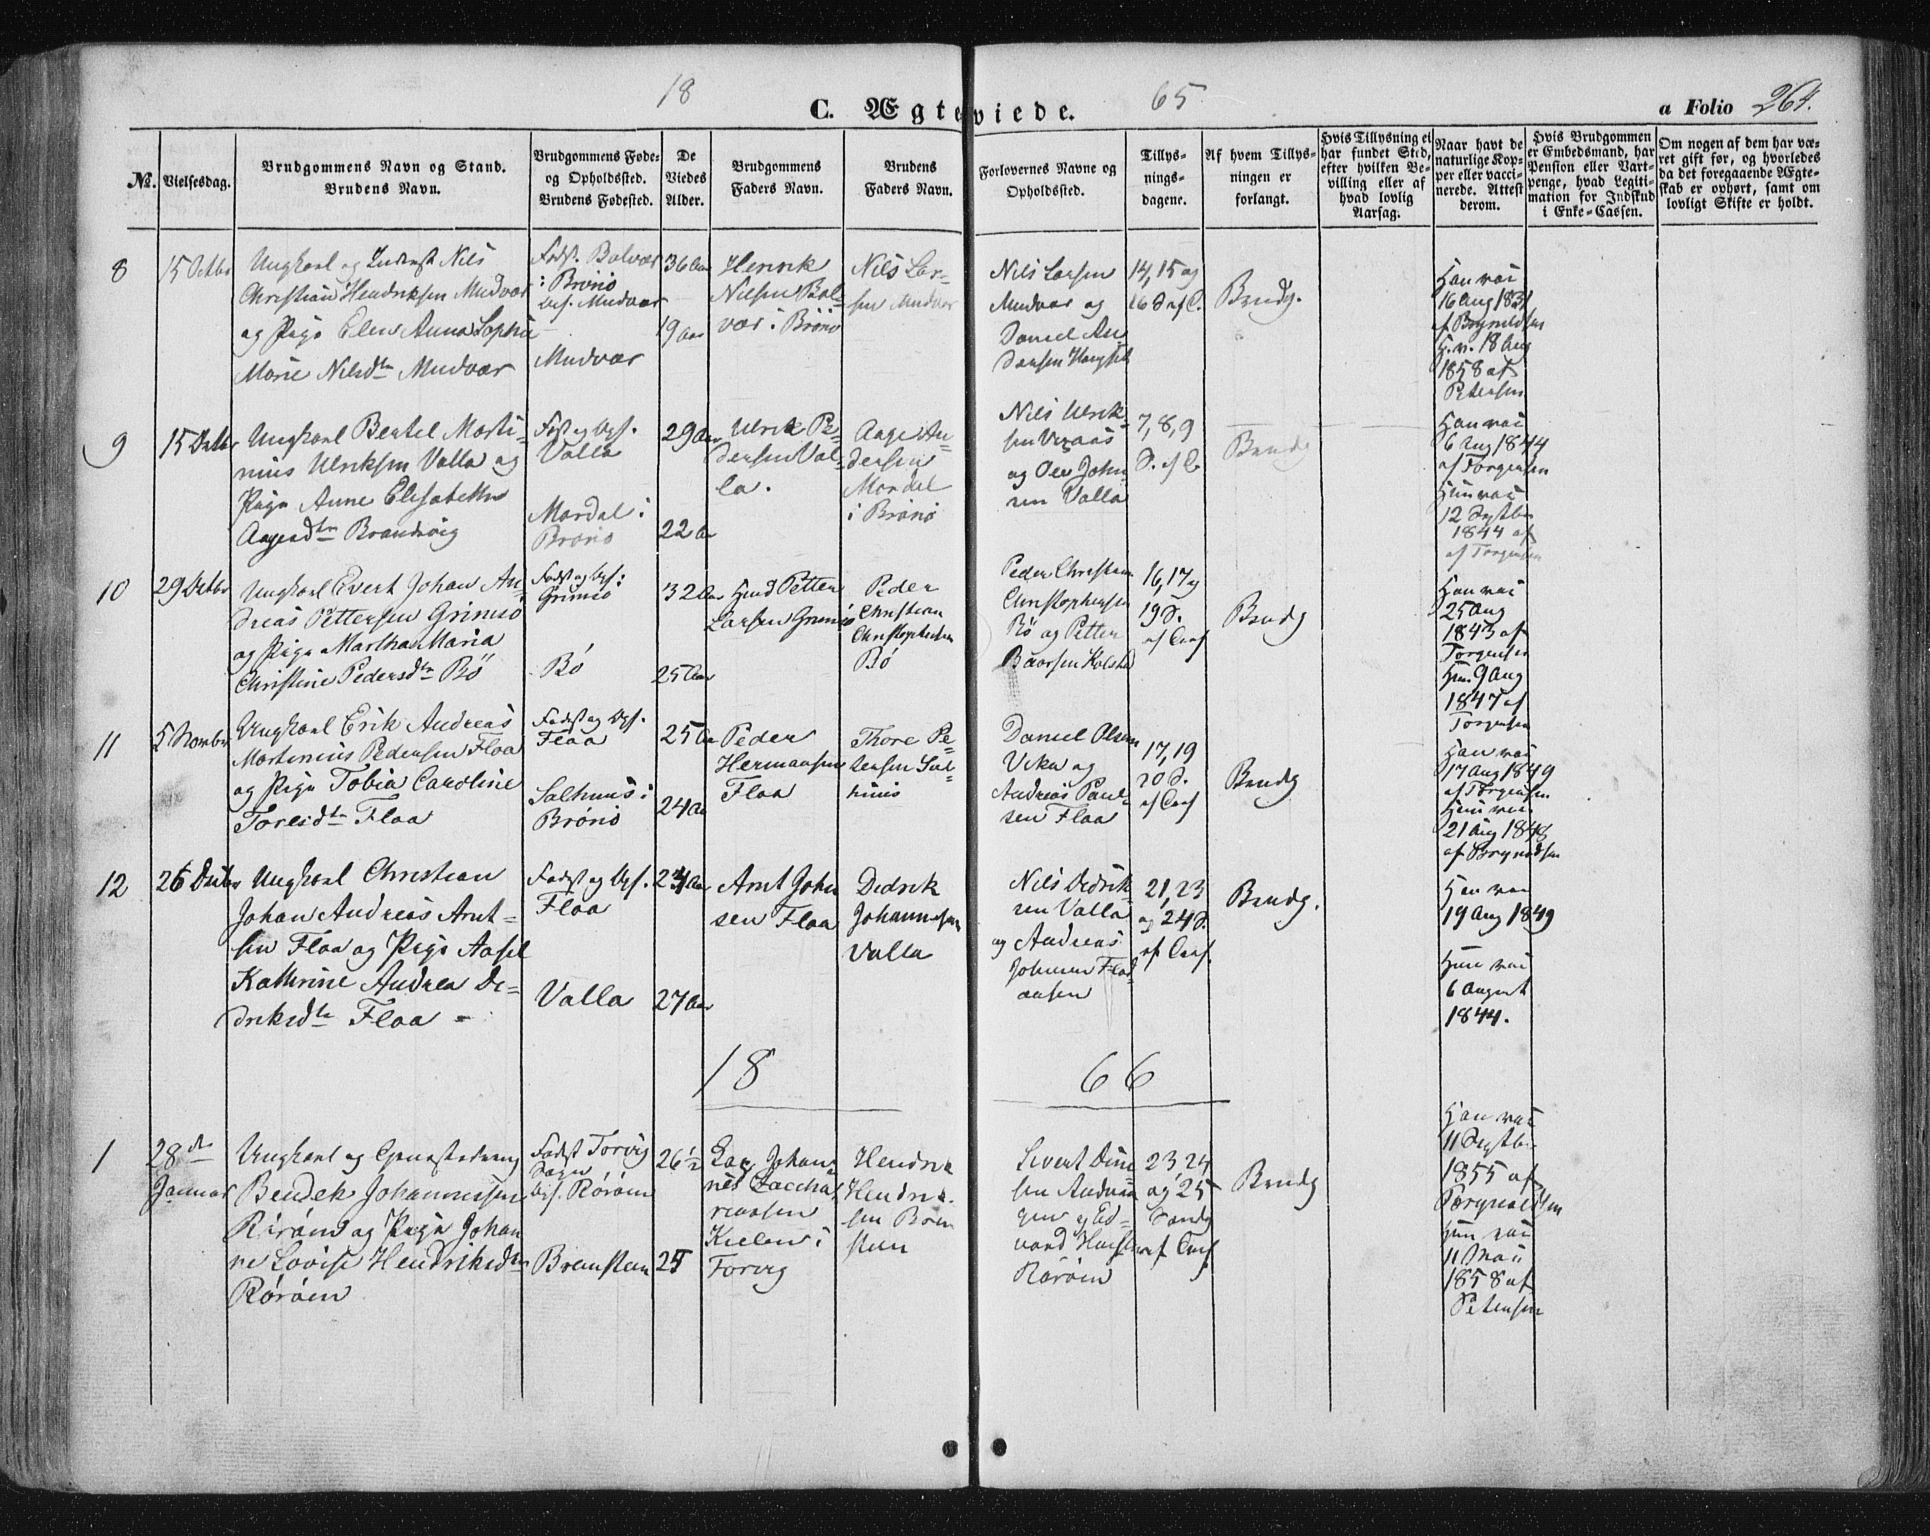 18 65
C. Ægteviede.
a Folio 264.
No.
Vielsesdag.
Brudgommens Navn og Stand.
Brudens Navn.
Brudgommens Føde-
og Opholdssted.
Brudens Fødested.
De
Viedes
Alder.
Brudgommens
Faders Navn.
Brudens
Faders Navn.
Forlovernes Navne og
Opholdssted.
Tillys-
nings-
dagene.
Af hvem Tillys-
ningen er
forlangt.
Hvis Tillysning ei
har fundet Sted,
efter hvilken Be-
villing eller af
hvad lovlig
Aarsag.
Naar havt de
naturlige Kop-
per eller vacci-
nerede. Attest
derom.
Hvis Brudgommen
er Embedsmand, har
Pension eller Vart-
penge, hvad Legiti-
mation for Indskud
i Enke-Cassen.
Om nogen af dem har væ-
ret gift før, og hvorledes
da det foregaaende Ægte-
skab er ophørt, samt om
lovligt Skifte er holdt.
8
15 Octbr
Ungkarl og Inderst Nils
Christian Hendriksen Mudvær
og Pige Elen Anna Sophie
Marie Nilsdtr Mudvær
Født Bolvær
i Brønø
Mudvær
Mudvær
36 Aar
19 Aar
Henrik
Nilsen Bol-
vær i Brønø
Nils Lar-
sen Mudvær
Nils Larsen
Mudvær og
Daniel An-
dersen
14, 15 og
16 S. af C.
Brudg.
Han var
16 Aug 1831
af Brynildsen
H. v. 18 Aug
1858 af
Petersen
9
15 Octbr
Ungkarl Bertel Morti-
nius Ulriksen Valla og
Pige Anne Elisabeth
Aagesdtr Brandvig
Født og Opf.
Valla
Mardal i
Brønø
29 Aar
22 Aar
Ulrik Pe-
dersen Val-
la.
Aage An-
dersen
Mardal
i Brønø
Nils Ulrik-
sen
og Ole John-
sen Valla
7, 8, 9
S. af C.
Brudg
Han var
6 Aug 1844
af Torgersen
Hun var
12 Septbr
1844 af
af Torgersen
10
29 Octbr
Ungkarl Evert Johan An-
dreas Pettersen Grimsø
og Pige Martha Maria
Christine Pedersdtr Bö
Født og Opf:
Grimsø
Bö
32 Aar
25 Aar
Petter
Larsen Grimsö
Peder
Christian
Christophersen
Bö
Peder Christian
Christophersen
Bö og Petter
Baarsen
16, 17 og
19 S.
af Craf
Brudg
Han var
25 Aug
1843 af
Torgersen
Hun 9 Aug
1847 af
Torgersen
11
5 Novembr
Ungkarl Erik Andreas
Mortinius Pedersen Floa
og Pige Tobia Caroline
Toresdtr Floa
Født og Opf.
Floa
Salhuus i
Brønø
25 Aar
24 Aar
Peder
Hermansen
Floa
Thore Pe-
tersen Sal-
huus
Daniel Olsen
og
Andreas Paul-
sen Floa
17, 19
20 S.
af Craf
Brudg
Han var
17 Aug 1849
af Torgersen
Hun var
21 Aug 1848
af Brynildsen
12
26 Decbr
Ungkarl Christian
Johan Andreas Arnt-
sen Floa og Pige Aasel
Kathrine Andrea De-
driksdtr Floa -
Født og Opf.
Floa
Valla
24 Aar
27 Aar
Arnt John
sen Floa
Dedrik
Johannesen
Valla
Nils Dedrik-
sen Valla
og Andreas
21, 23
og 24 S.
af Craf.
Brudg.
Han var
19 Aug 1849
Hun var
6 August
1844.
18 66
1
28de
Januar
Ungkarl og
Bendek Johannessen
Rørøen og Pige Johan
ne Lovise Hendriksdtr
Rørøen
Født Torvig
Sogn
Opf. Rørøen
Brensteen
26½
25
Johan-
nes Zaccha
riassen
Kielen i
Torvig
Hendrik
Hendrik
sen Bren
steen
Sivert
Rørøen
23, 24
og 25
af Craf
Brudg
Han var
11 Septbr
1855 af
Brynildsen
Hun var
11 Mai
1858 af
Petersen